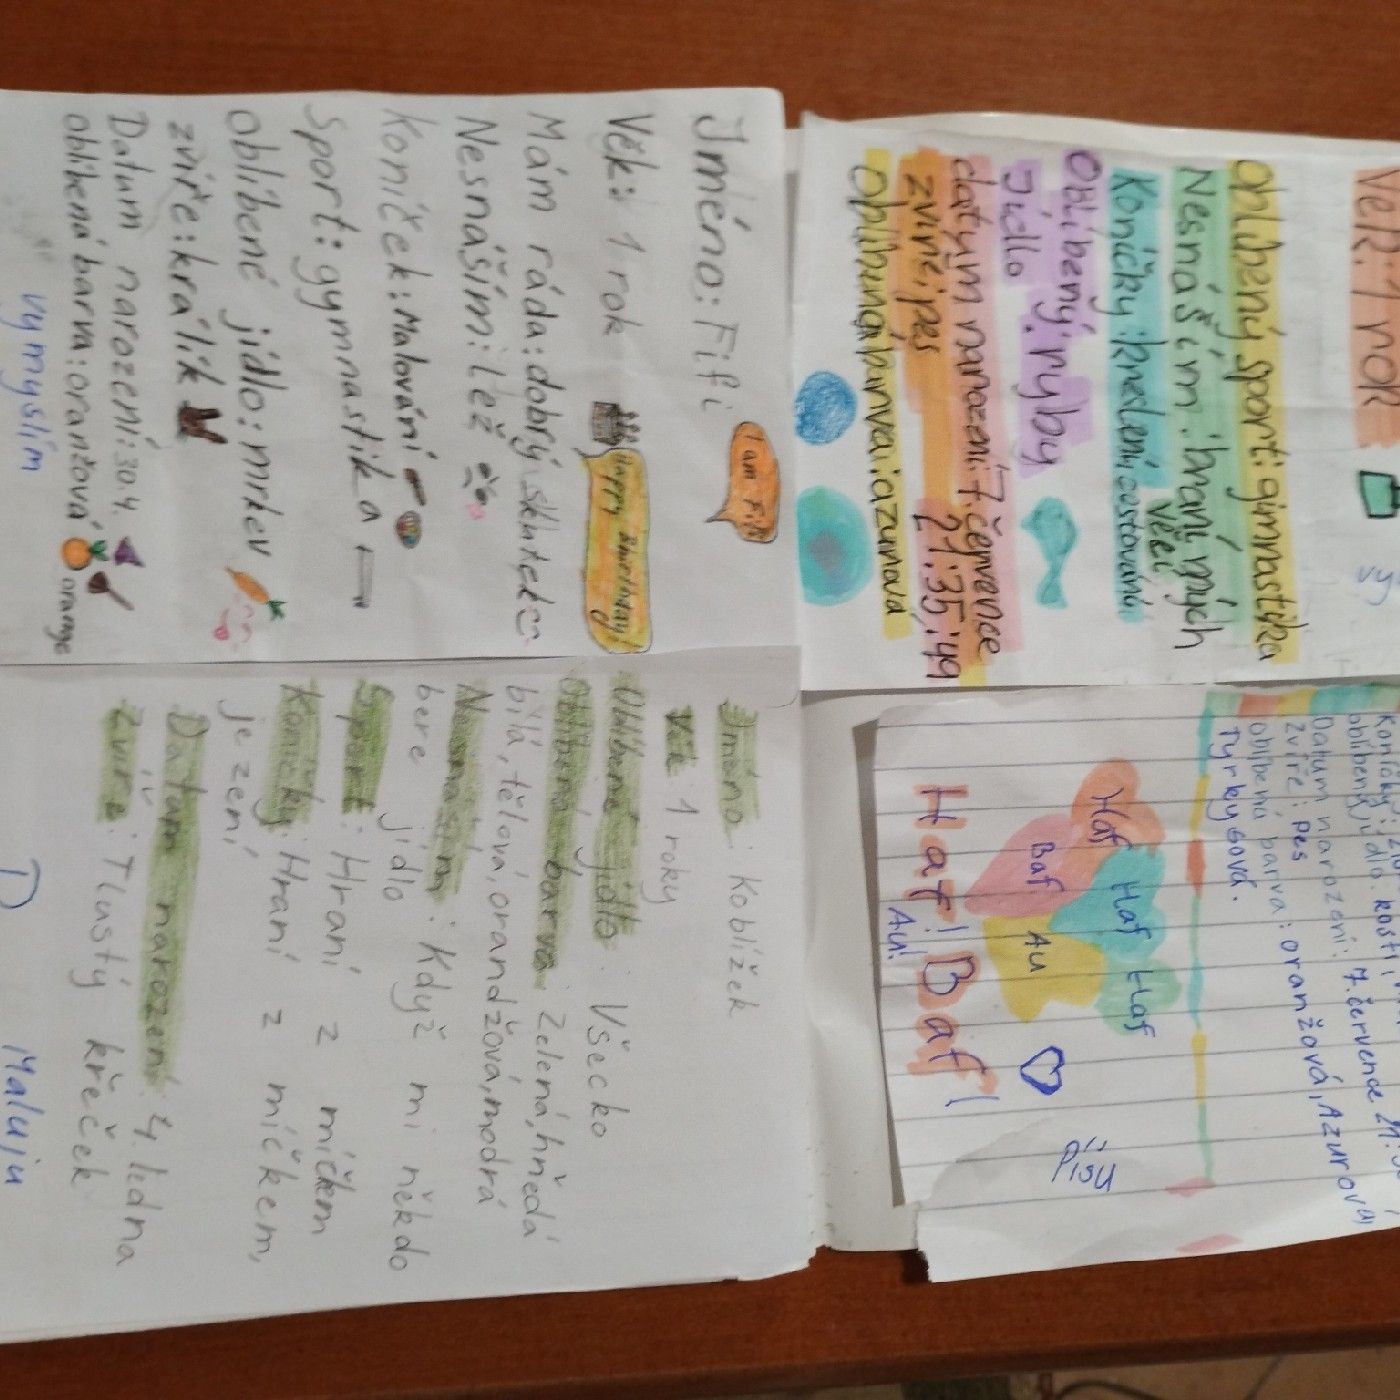 Věk: 1 rok
Oblíbený sport: gimnastika
Nesnáším: braní mých
věcí
Koníčky: kreslení, cestování
Oblíbený: ryby
Jídlo
datum narození: 7. července
21:35:49
zvíře: pes
Oblíbená barva: azurová
Jméno: Fifi
I am Fifi
Věk: 1 rok
Mám ráda: dobrý skutek
Nesnáším: lež
Koníček: Malování
Sport: gymnastika
Oblíbené jídlo: mrkev
zvíře: králík
Datum narození: 30.4.
oblíbená barva: oranžová
orange
vymyslím
obíbený jídlo: kosti
Datum narození: 7. července
Zvíře: pes
obíbená barva: oranžová, Azurová,
Tyrkysová.
Haf
Haf
Haf
Baf
Au
Haf! Baf!
Au!
Píšu
Jméno: Koblížek
Věk 1 roky
Oblíbené jídlo: Všecko
Oblíbená barva: Zelená, hnědá
bílá, tělová, orandžová, modrá
Nesnáším: Když mi někdo
bere jídlo
Sport: Hraní z míčkem
Koníčky: Hraní z míčkem,
jezení
Datum narození: 4. ledna
Zvíře: Tlustý křeček
Maluju